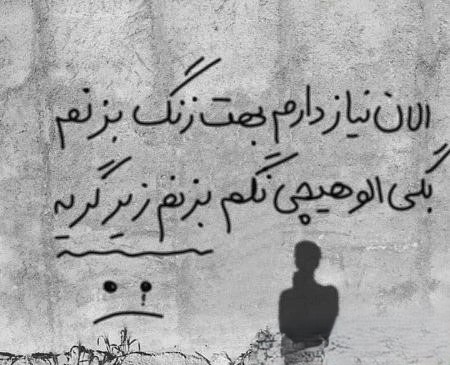 الان نیاز دارم بهت زنگ بزنم
بگی الو هیچی نگم بزنم زیر گریه